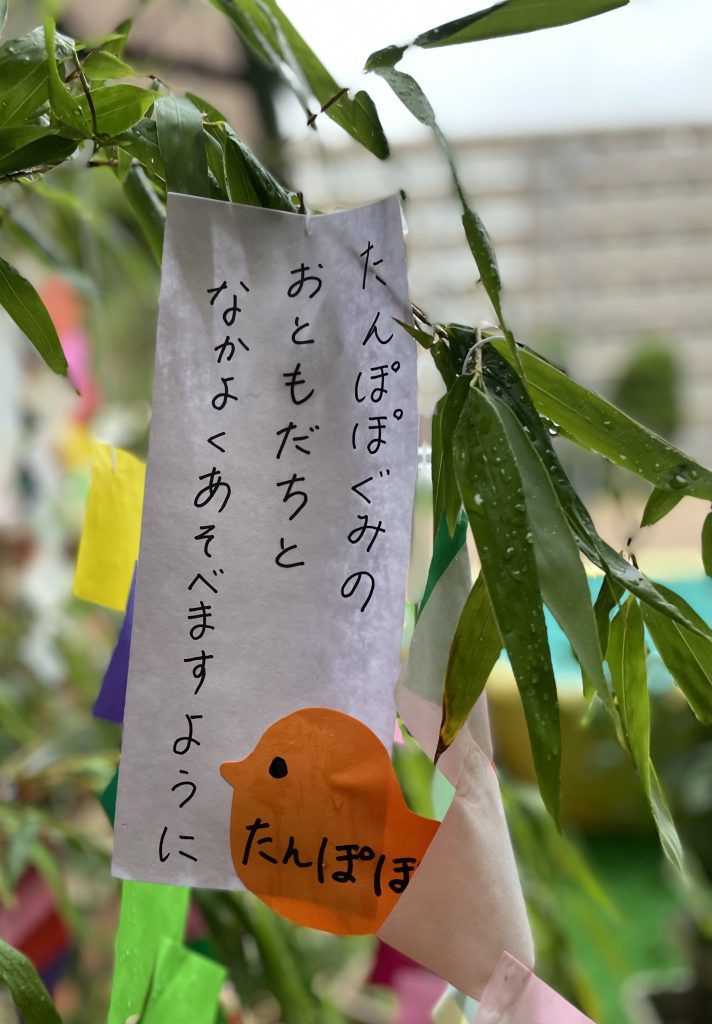 たんぽぽぐみの
おともだちと
なかよくあそべますように
たんぽぽ